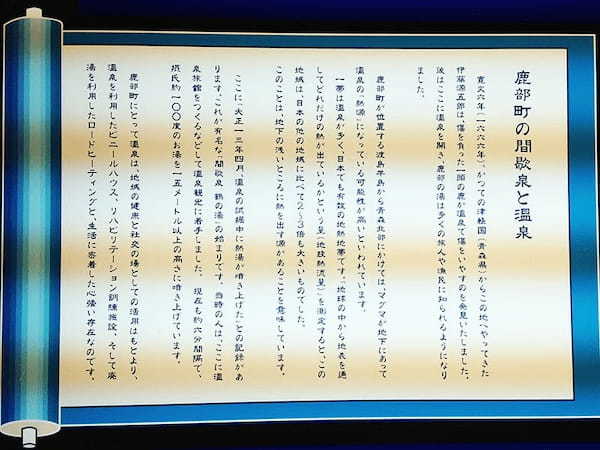 鹿部町の間歇泉と温泉
寛文六年(一六六六年)、かつての津軽国(青森県)からこの地へやってきた
伊藤源五郎は、傷を負った一頭の鹿が温泉で傷をいやすのを発見いたしました。
彼はここに温泉を開き、鹿部の湯は多くの旅人や漁民に知られるようになり
ました。
鹿部町が位置する渡島半島から青森北部にかけては、マグマが地下にあって
温泉の「熱源」になっている可能性が高いといわれています。
一帯は温泉が多く、日本でも有数の地熱地帯です。「地球の中から地表を通
してどれだけの熱が出ているかという量(地殻熱流量)」を測定すると、この
地域は、日本の他の地域に比べて2~3倍も大きいものでした。
このことは、地下の浅いところに熱を出す源があることを意味しています。
ここに、大正一三年四月、「温泉の試掘中に熱湯が噴き上げた」との記録があ
ります。これが有名な「間歇泉 鶴の湯」の始まりです。当時の人は、ここに温
泉旅館をつくるなどして温泉観光に着手しました。 現在も約六分間隔で、
摂氏約一〇〇度のお湯を一五メートル以上の高さに噴き上げています。
鹿部町にとって温泉は、地域の健康と社交の場としての活用はもとより、
温泉を利用したビニールハウス、リハビリテーション訓練施設、そして廃
湯を利用したロードヒーティングと、生活に密着した心強い存在なのです。